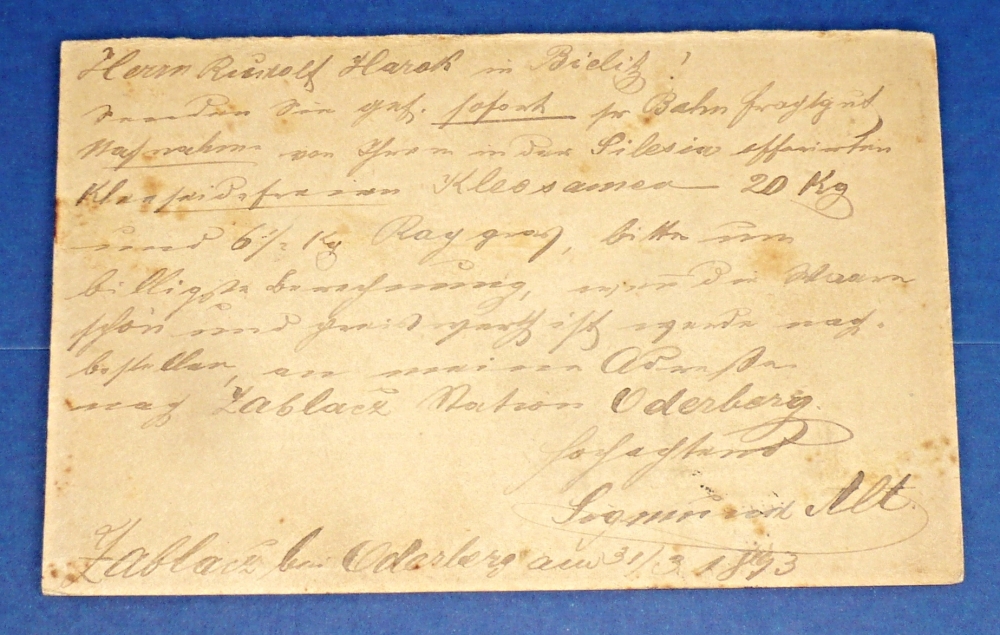 Herrn Rudolf Harok in Bielitz!
Senden Sie gef. sofort pr Bahn Frachtgut
Nachnahme von Ihrem in der Silesia offerirten
Kleeseidefreien Kleesamen 20 Kg
und 6 1/2 Kg Raygras, bitte um
billigste Berechnung, wenn die Waare
schön und preiswerth ist werde nach-
bestellen, an meine Adresse
nach Zablacz Station Oderberg.
Hochachtend
Sigmund Alt.
Zablacz bei Oderberg am 31/3 1893